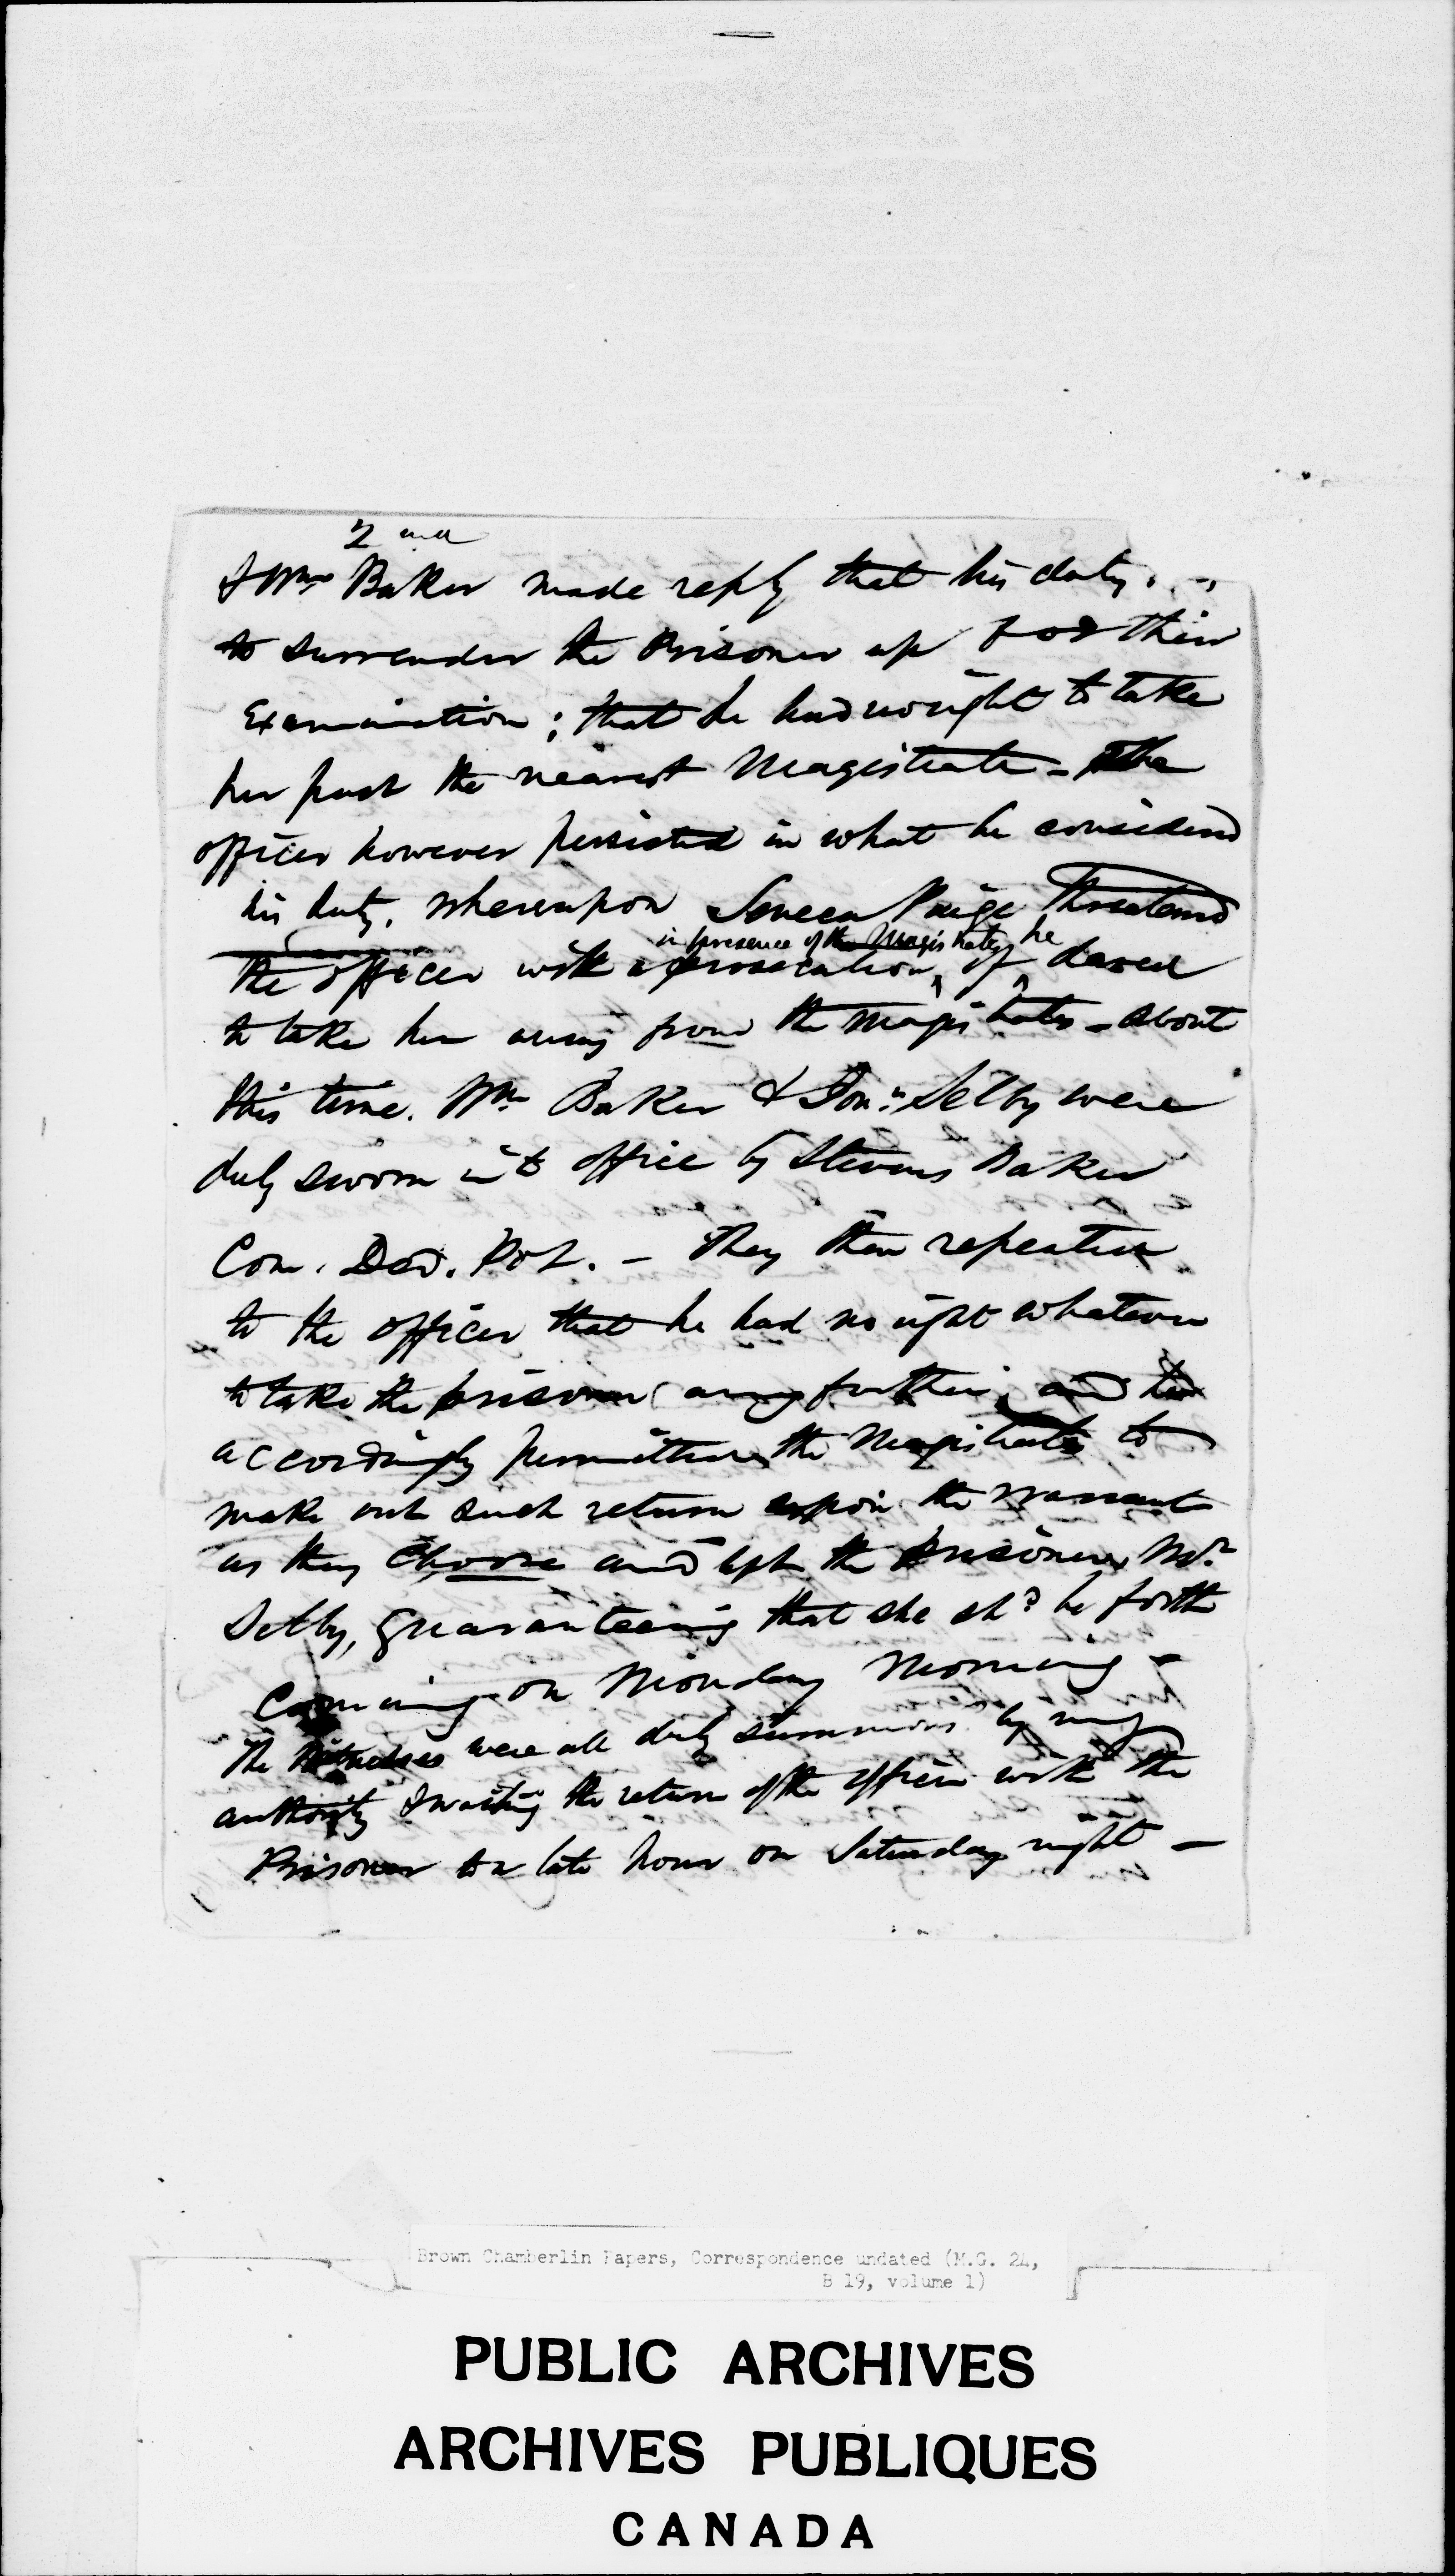 2nd
& Wm Baker made reply that his duty
to surrender the Prisoner up for their
Examination; that he had no right to take
her past the nearest Magistrate - The
officer however persisted in what he considered
his duty. whereupon Seneca Paige threatened
in presence of the Magistrates he
the officer with a prosecution, if dared
to take her away from the Magistrates - About
this time. Wm Baker & Jon.n Selby were
duly sworn into office by Stevens Baker
Com. Ded. Pot. - They then repeated
to the officer that he had no right whatever
to take the prisoner any further, and he
accordingly permitted the Magistrates to
make out such return upon the warrant
as they choose and left the prisoner, Mr
Selby, guaranteeing that she shd be forth
Coming on Monday Morning -
The Witnesses were all duly summons by my
authority & waiting the return of the officer with the
Prisoner to a late hour on Saturday night -
Brown Chamberlin Papers, Correspondence undated (M.G. 24,
B 19, volume 1)
PUBLIC ARCHIVES
ARCHIVES PUBLIQUES
CANADA